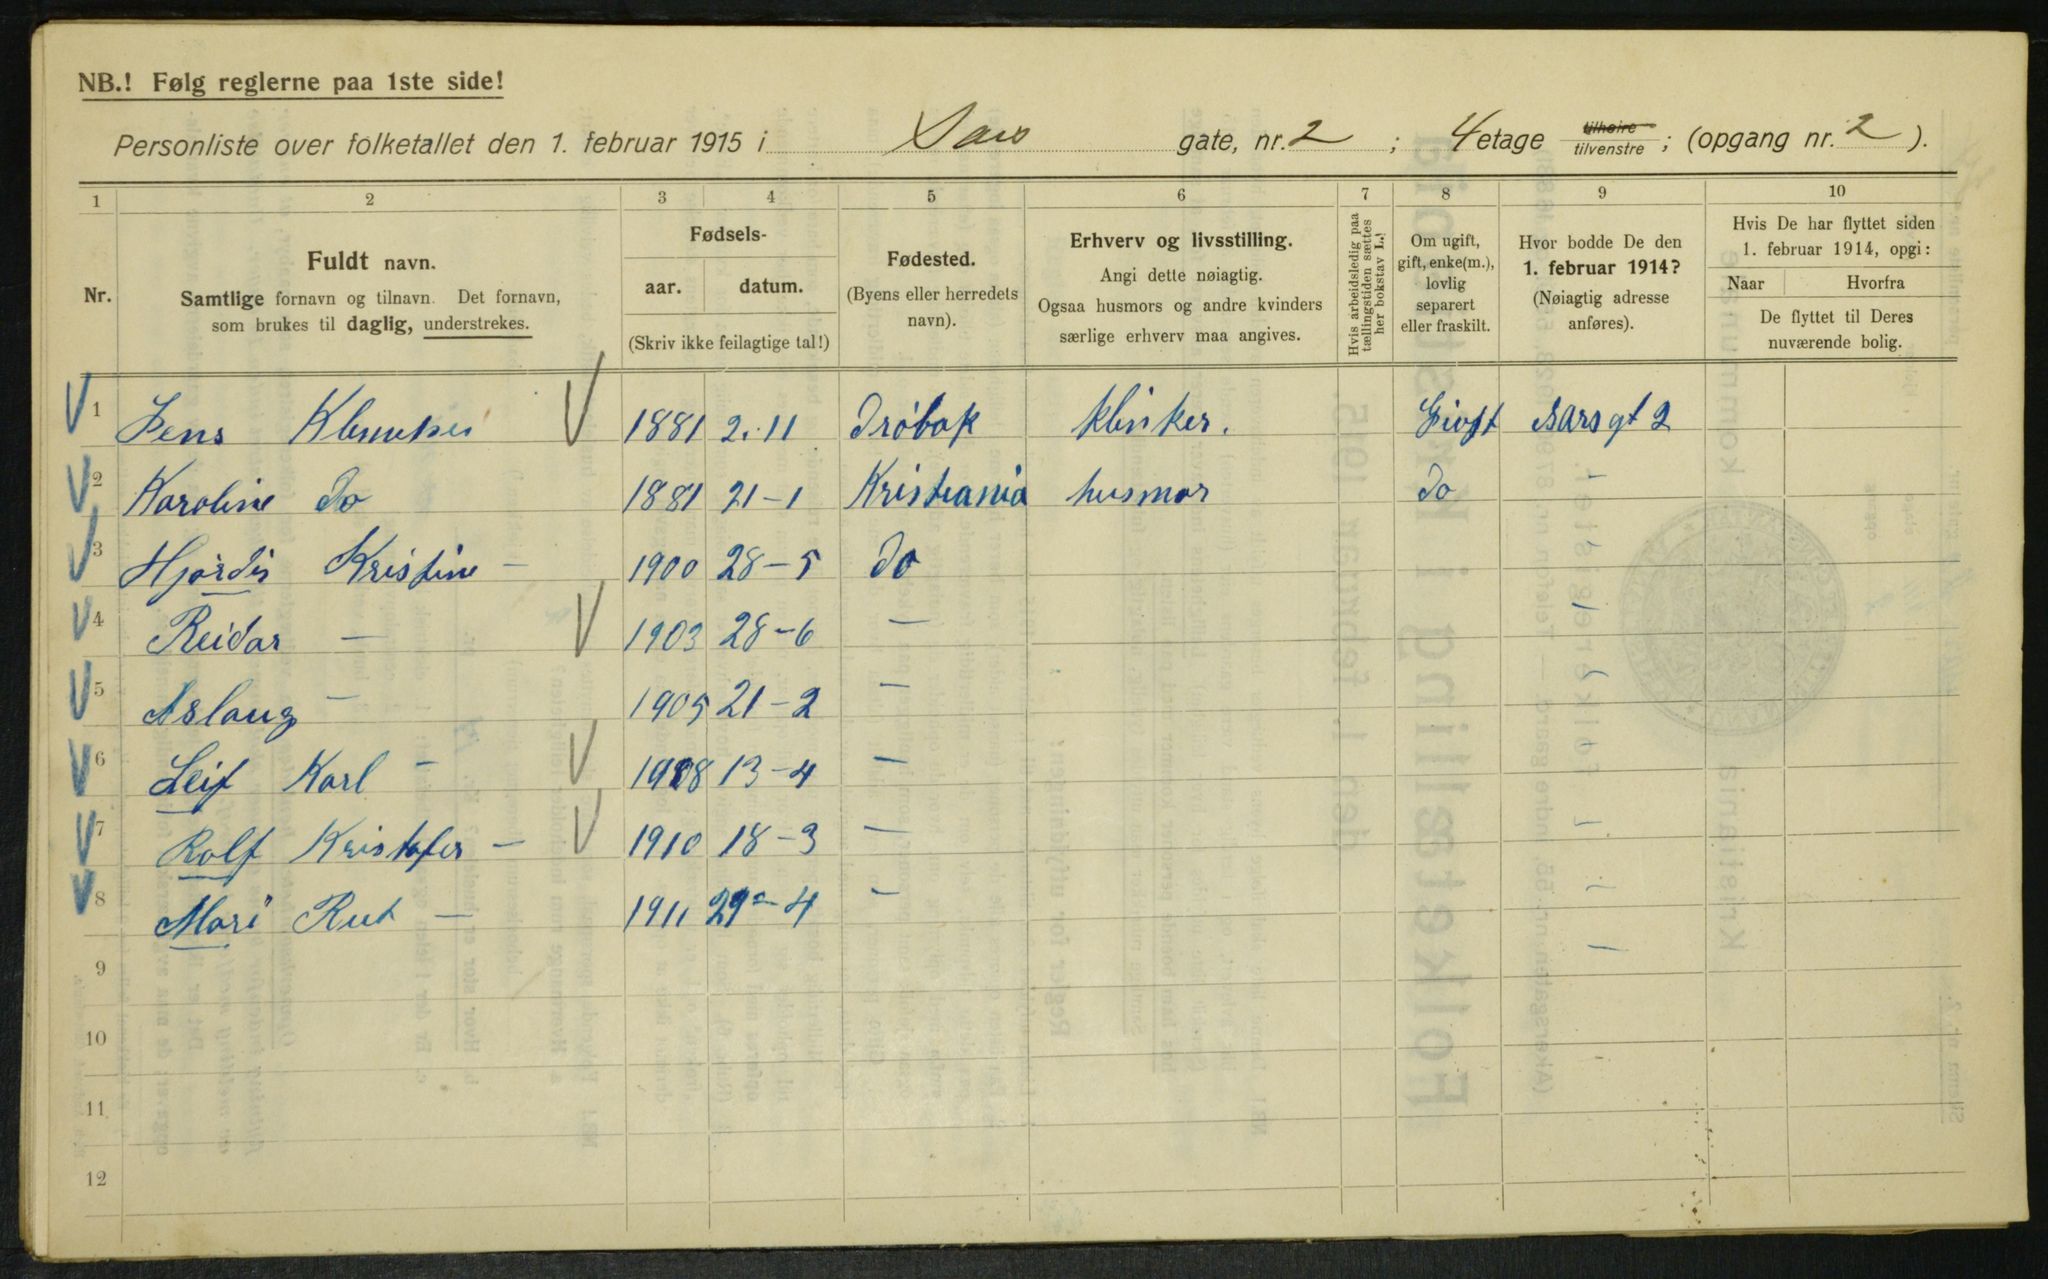 NB.! Følg reglerne paa 1ste side!
Personliste over folketallet den 1. februar 1915 i Sars gate, nr. 2 ; 4 etage tilhøire tilvenstre ; (opgang nr. 2 ).
1 2 3 4 5 6 7 8 9 10
Nr.
Fuldt navn.
Samtlige fornavn og tilnavn. Det fornavn, som brukes til daglig, understrekes.
Fødsels-
aar. datum.
(Skriv ikke feilagtige tal!)
Fødested.
(Byens eller herredets navn).
Erhverv og livsstilling.
Angi dette nøiagtig.
Ogsaa husmors og andre kvinders særlige erhverv maa angives.
Hvis arbeidsledig paa tællingstiden sættes her bokstav L.!
Om ugift, gift, enke(m.), lovlig separert eller fraskilt.
Hvor bodde De den 1. februar 1914?
(Nøiagtig adresse anføres).
Hvis De har flyttet siden 1. februar 1914, opgi:
Naar Hvorfra
De flyttet til Deres nuværende bolig.
1 Jens 1881 2.11 Drøbak Givft Sarsgt 2
2 Karoline Do 1881 21-1 Kristiania husmor Do -
3 Hjørdis Kristine - 1900 28-5 Do
4 Reidar - 1903 28-6 -
5 Aslaug - 1905 21-2 -
6 Leif Karl - 1908 13-4 -
7 Rolf Kristofer - 1910 18-3 -
8 Mari Rut - 1911 29-4 -
9
10
11
12